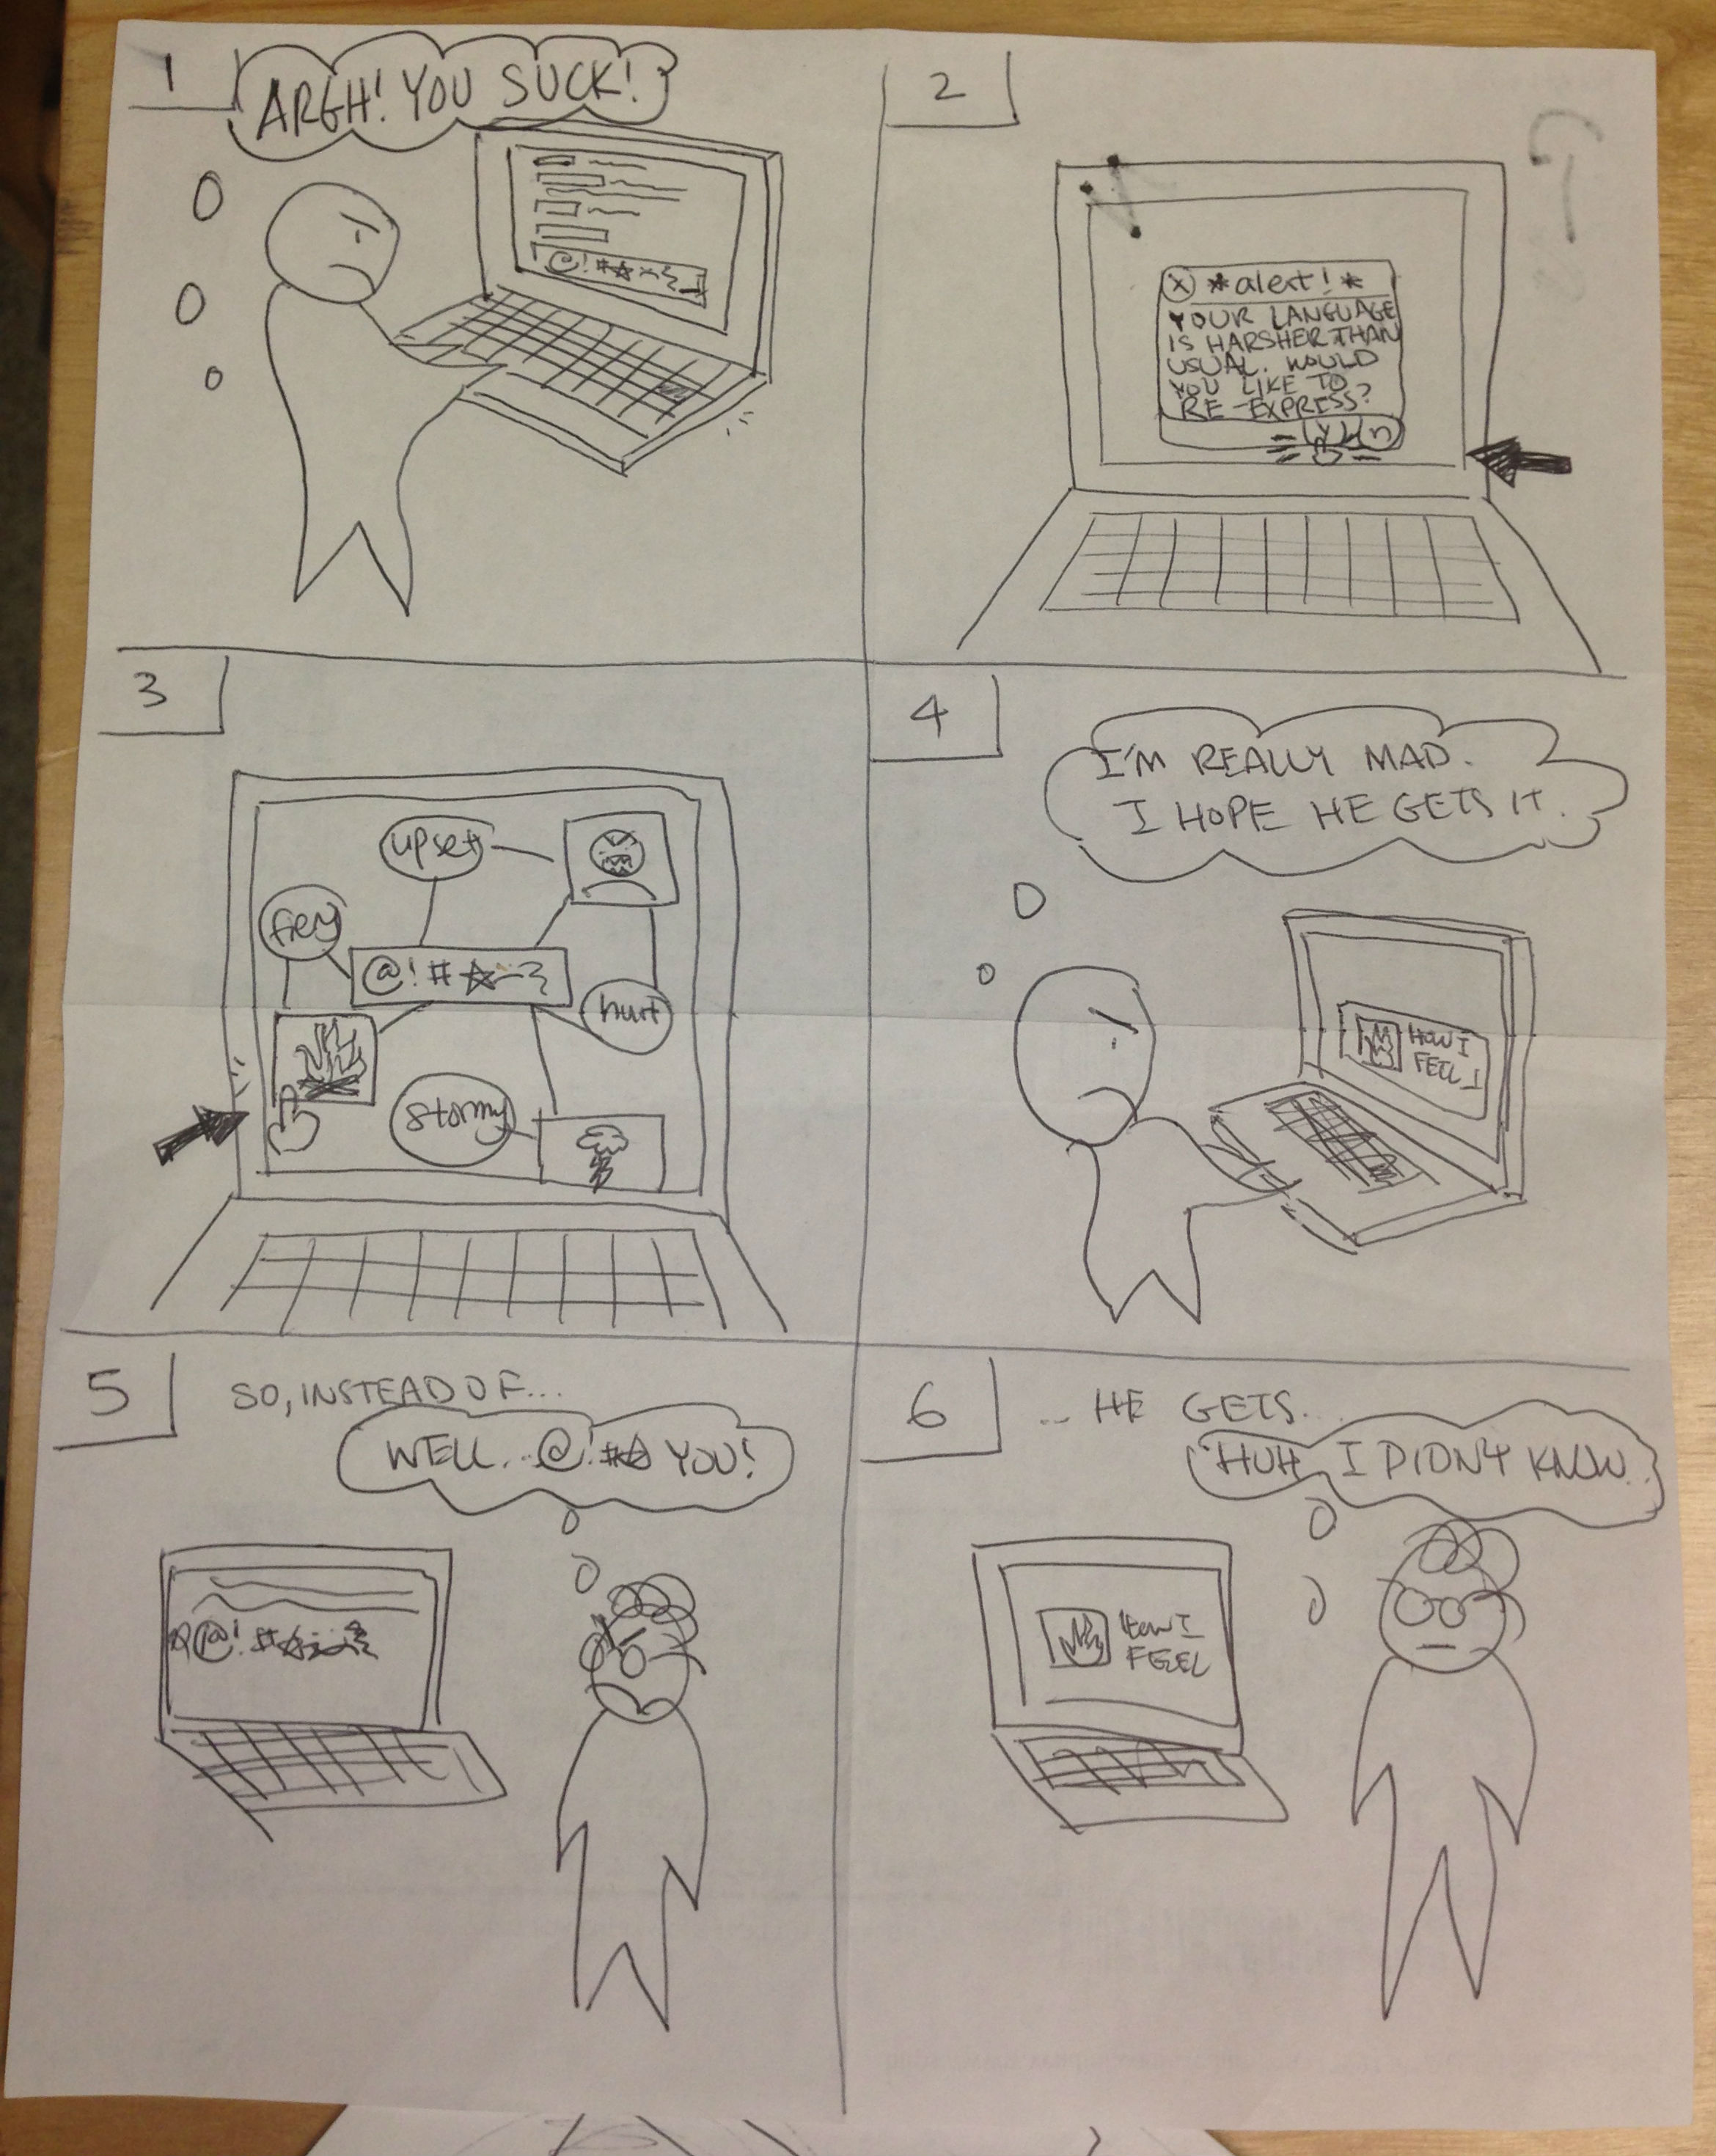 1
ARGH! YOU SUCK!
@!#☆
2
X *alert!*
YOUR LANGUAGE
IS HARSHER THAN
USUAL. WOULD
YOU LIKE TO
RE-EXPRESS?
y n
3
upset
fiery
@!#☆~}
hurt
stormy
4
I'M REALLY MAD.
I HOPE HE GETS IT.
HOW I
FEEL
5
SO, INSTEAD OF...
WELL...@!#☆ YOU!
@!#☆
6
... HE GETS...
HUH, I DIDN'T KNOW.
HOW I
FEEL